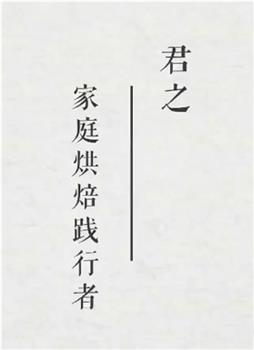 君之
家庭烘焙践行者